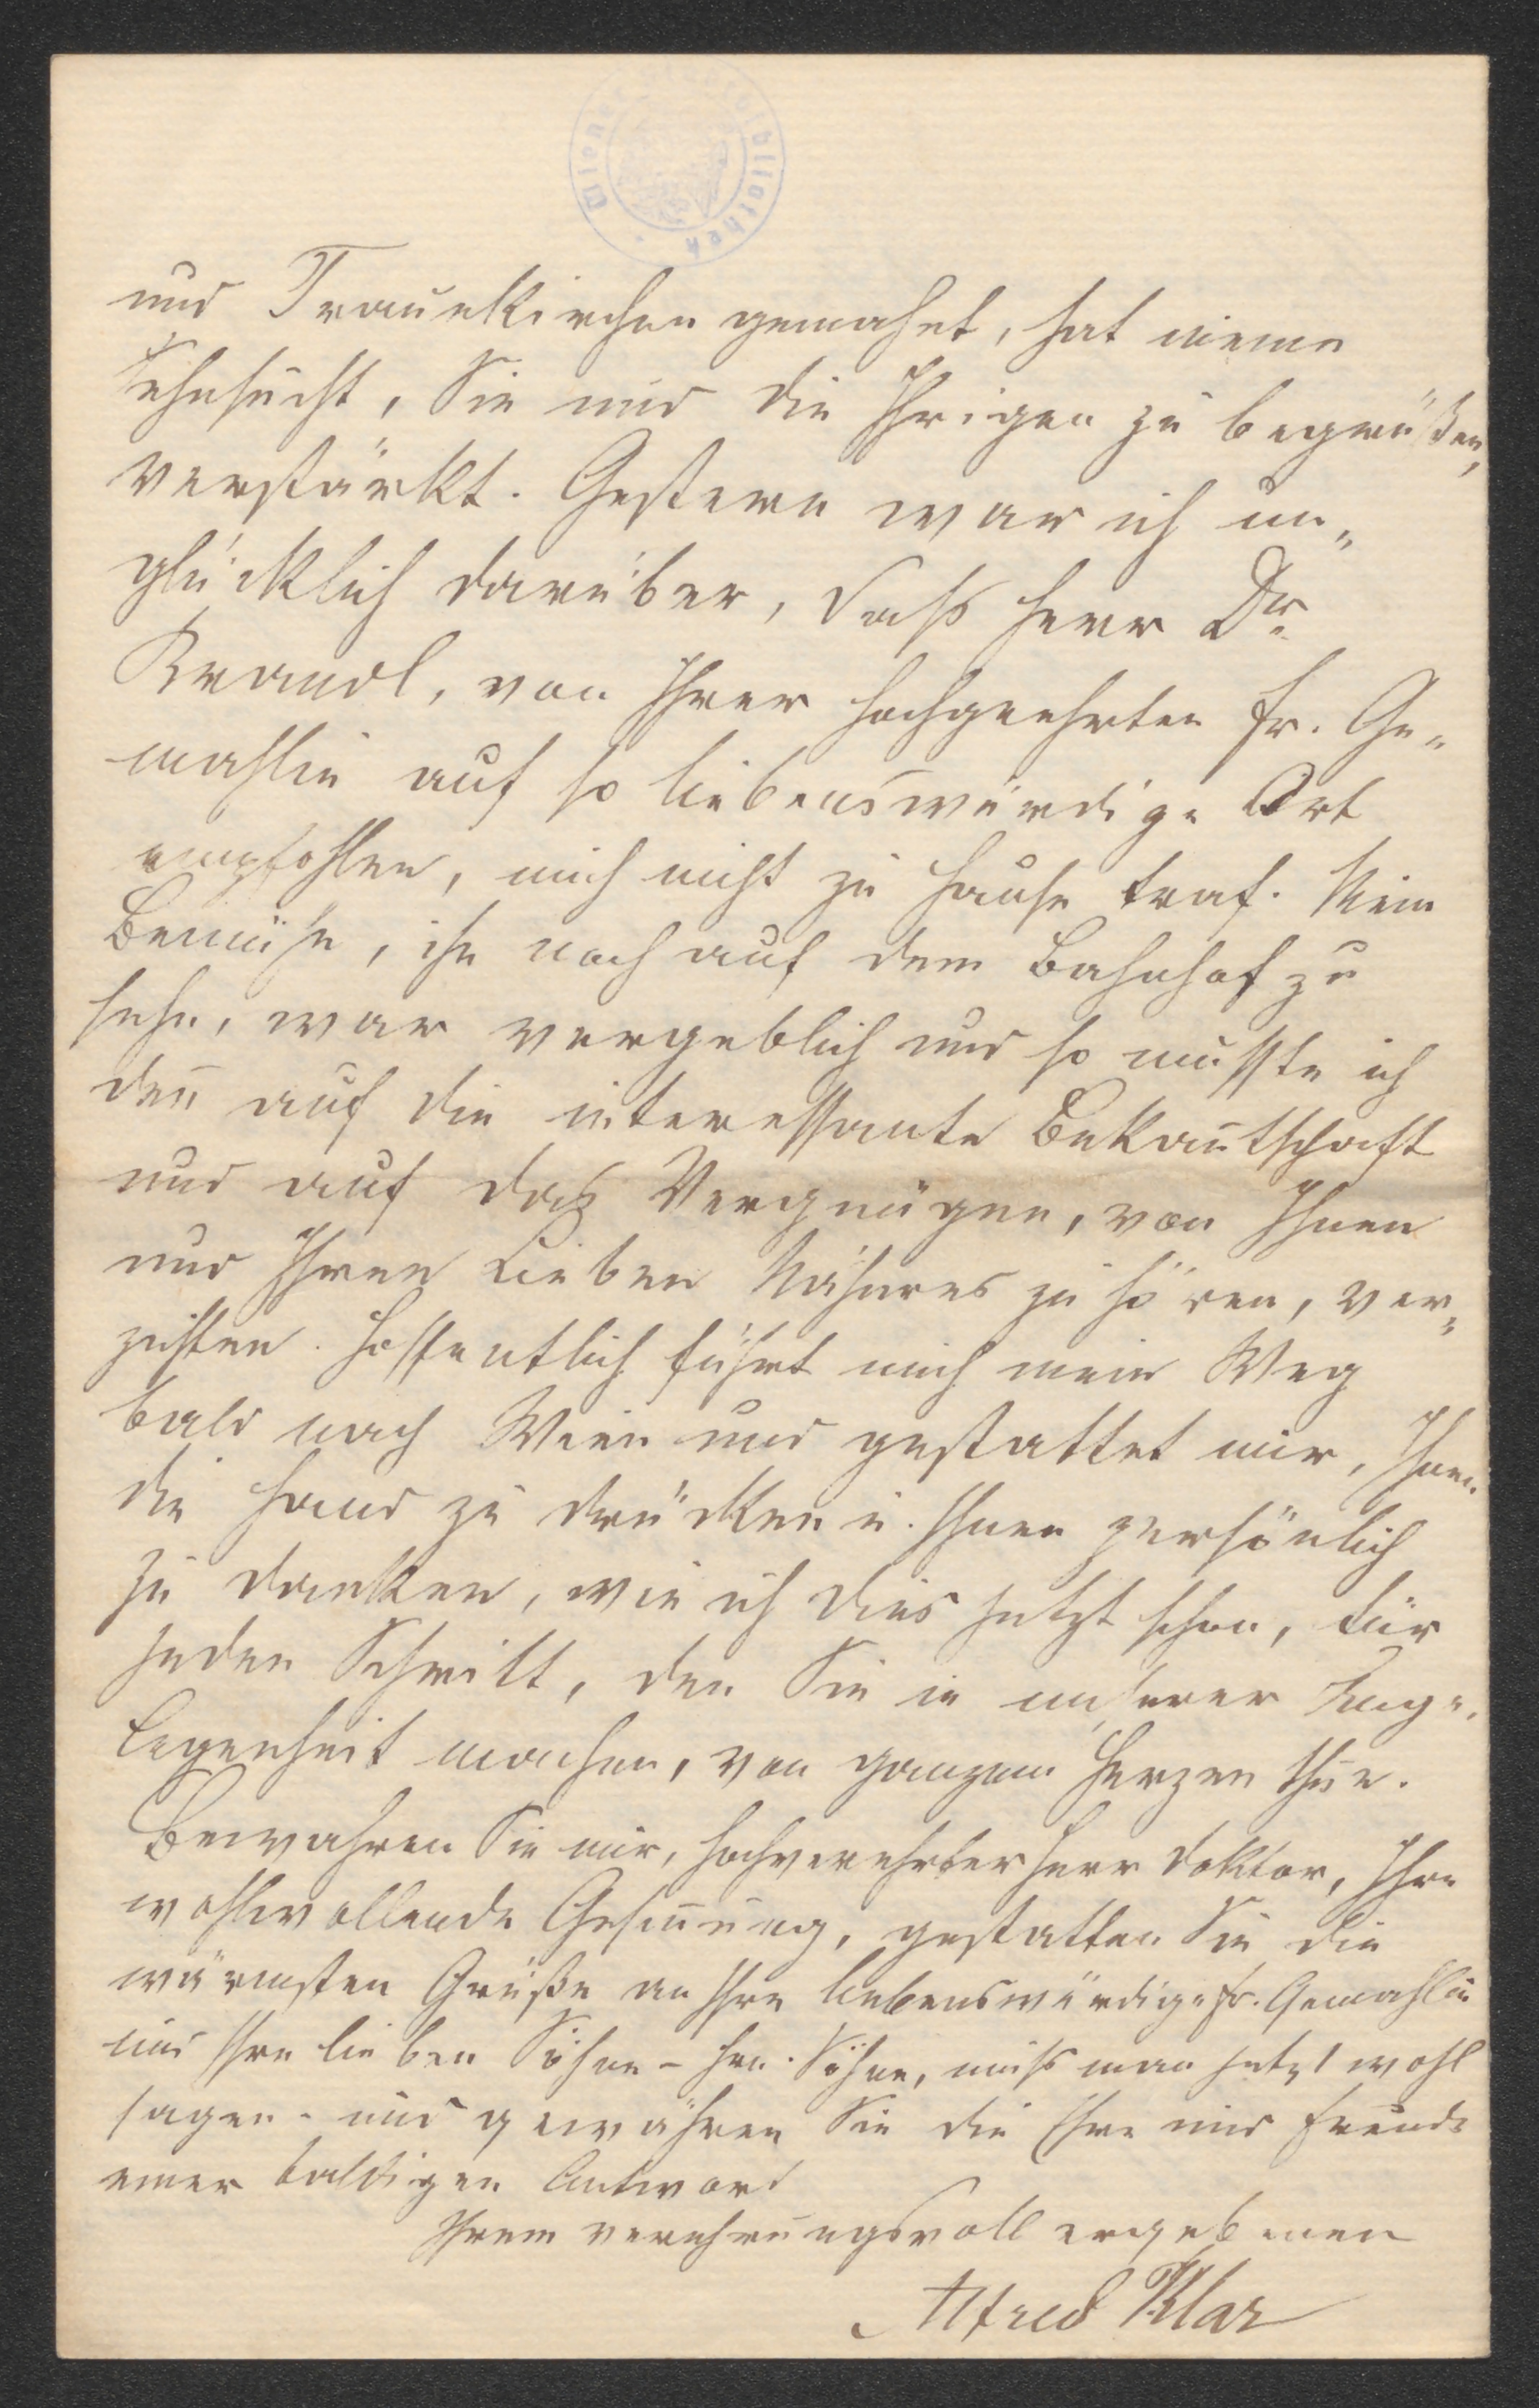 Wiener Stadtbibliothek
und Traunkirchen gemahnt, hat meine
Sehnsucht, Sie und die Ihrigen zu begrüßen,
verstärkt. Gestern war ich un„
glücklich darüber, daß Herr Dr.
Brandl, von Ihrer hochgeehrten Fr. Ge„
mahlin auf so liebenswürdige Art
empfohlen, mich nicht zu Hause traf. Mein
Bemühn, ihn noch auf dem Bahnhof zu
sehn, war vergeblich und so musste ich
den̄ auf die interessante Bekan̄tschaft
und auf das Vergnügen, von Ihnen
und Ihren Lieben Näheres zu hören, ver„
zichten. Hoffentlich führt mich mein Weg
bald nach Wien und gestattet mir, Ihnen
die Hand zu drücken u. Ihnen persönlich
zu danken, wie ich dies jetzt schon, für
jeden Schritt, den Sie in unserer Ange„
legenheit machen, von ganzem Herzen thue.
Bewahren Sie mir, hochverehrter Herr Doktor, Ihre
wohlwollende Gesin̄ung, gestatten Sie die
wärmsten Grüße an Ihre liebenswürdige Fr. Gemahlin
und Ihre lieben Söhne – Hrn. Söhne, muß man jetzt wohl
sagen – und gewähren Sie die Ehre und Freude
einer baldigen Antwort
Ihrem verehrungsvoll ergebenen
Alfred Klar